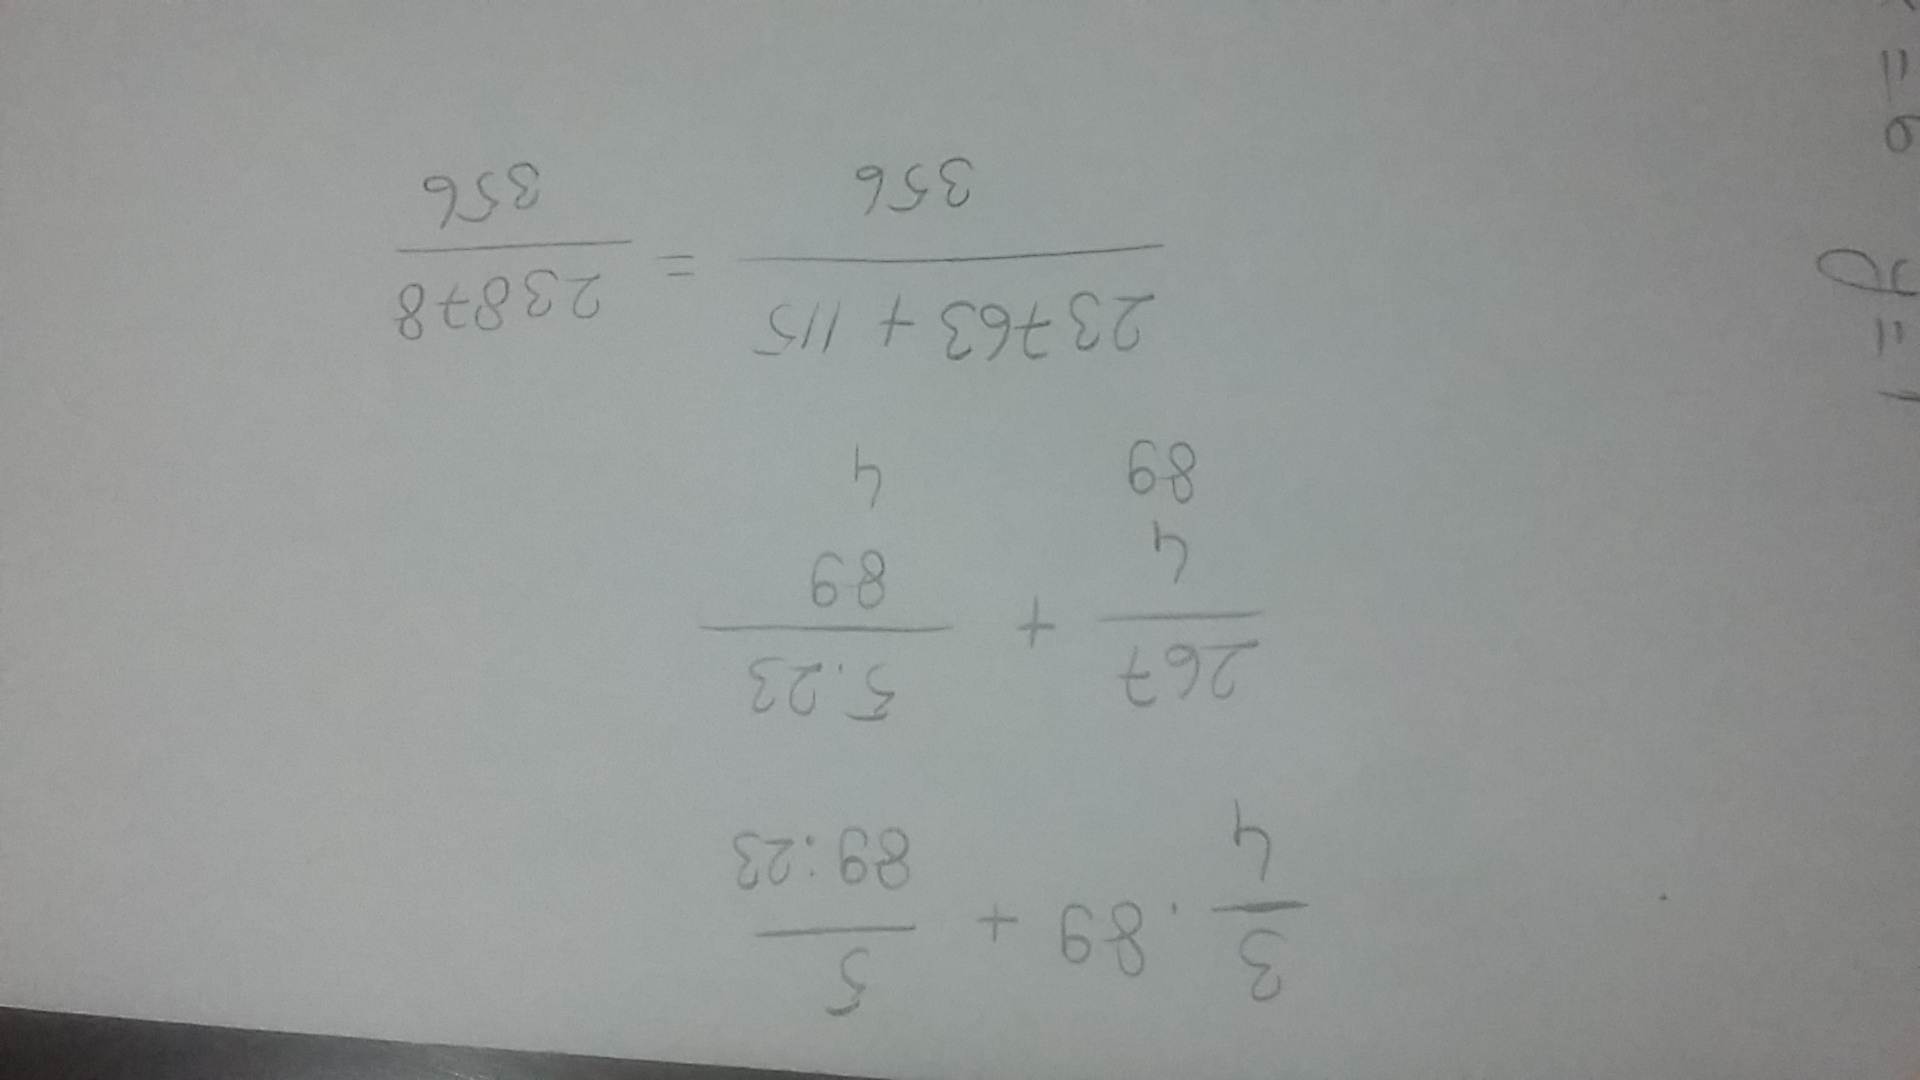 3/4 . 89 + 5/89:23
267/4 + 5.23/89
89 4
23763 + 115/356 = 23878/356
= 6
y =